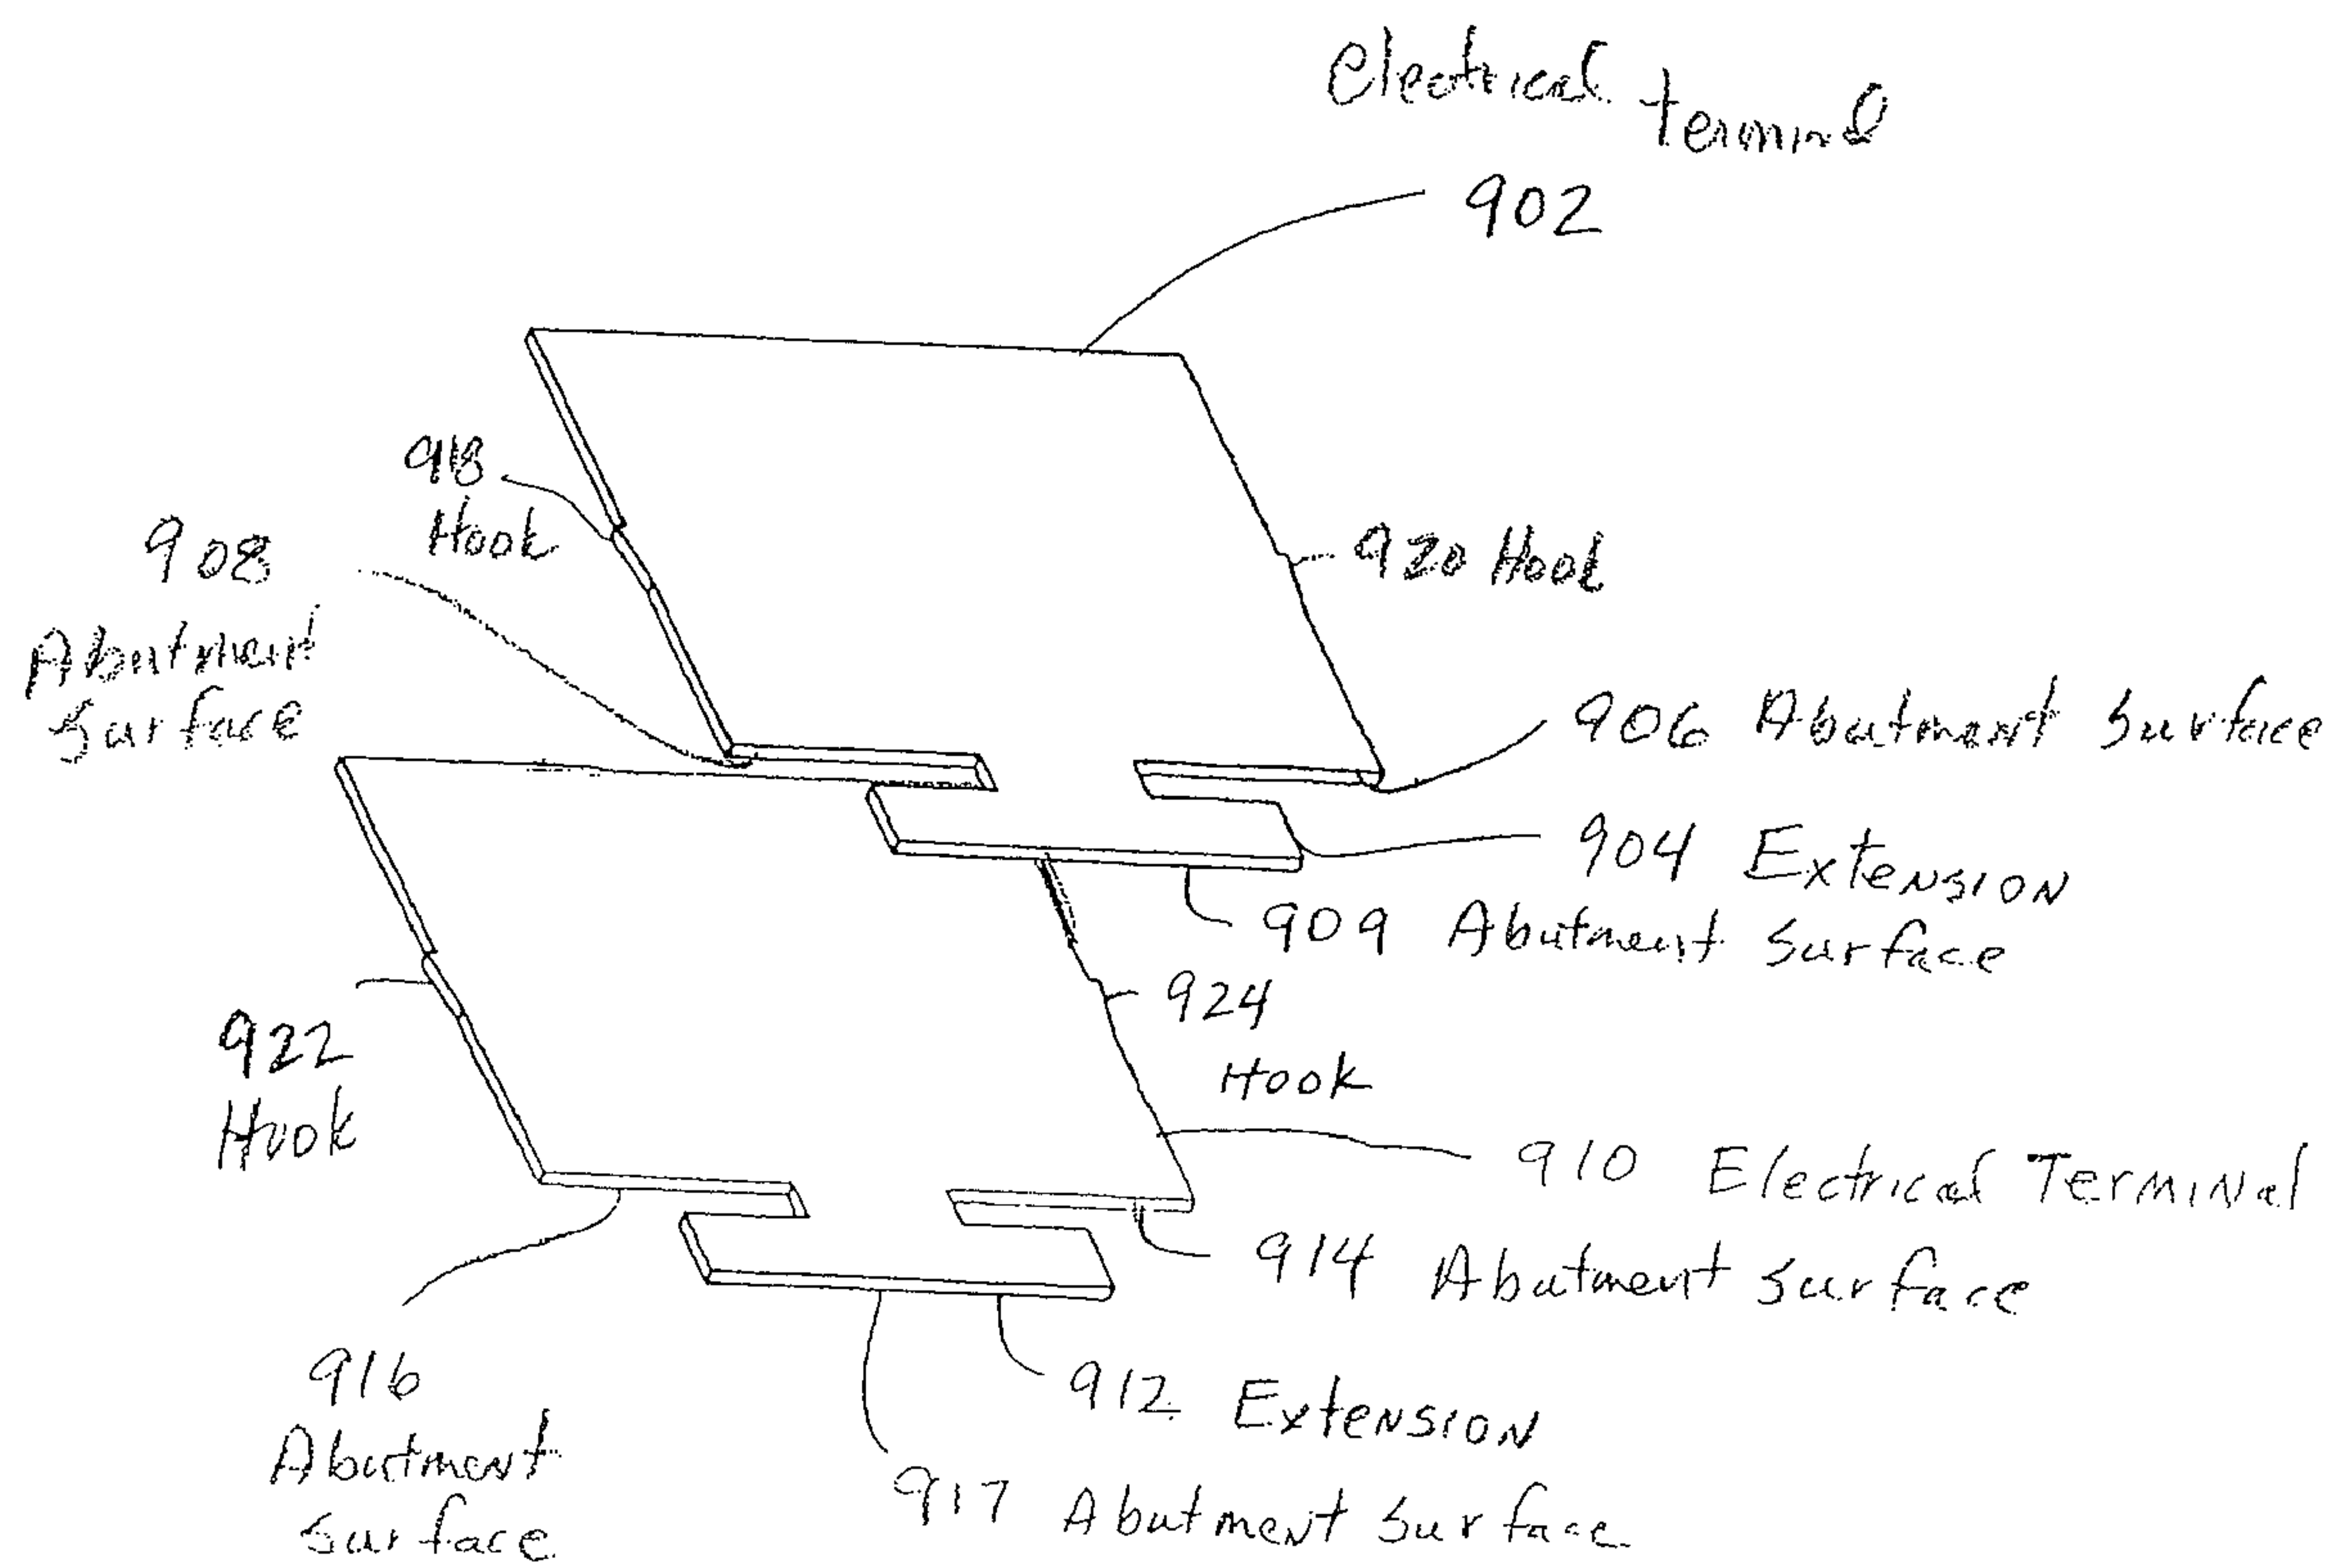 Electrical terminal
902
918
Hook
908
Abutment
Surface
920 Hook
906 Abutment Surface
904 Extension
909 Abutment Surface
924
Hook
922
Hook
910 Electrical Terminal
914 Abutment Surface
916
Abutment
Surface
912 Extension
917 Abutment Surface